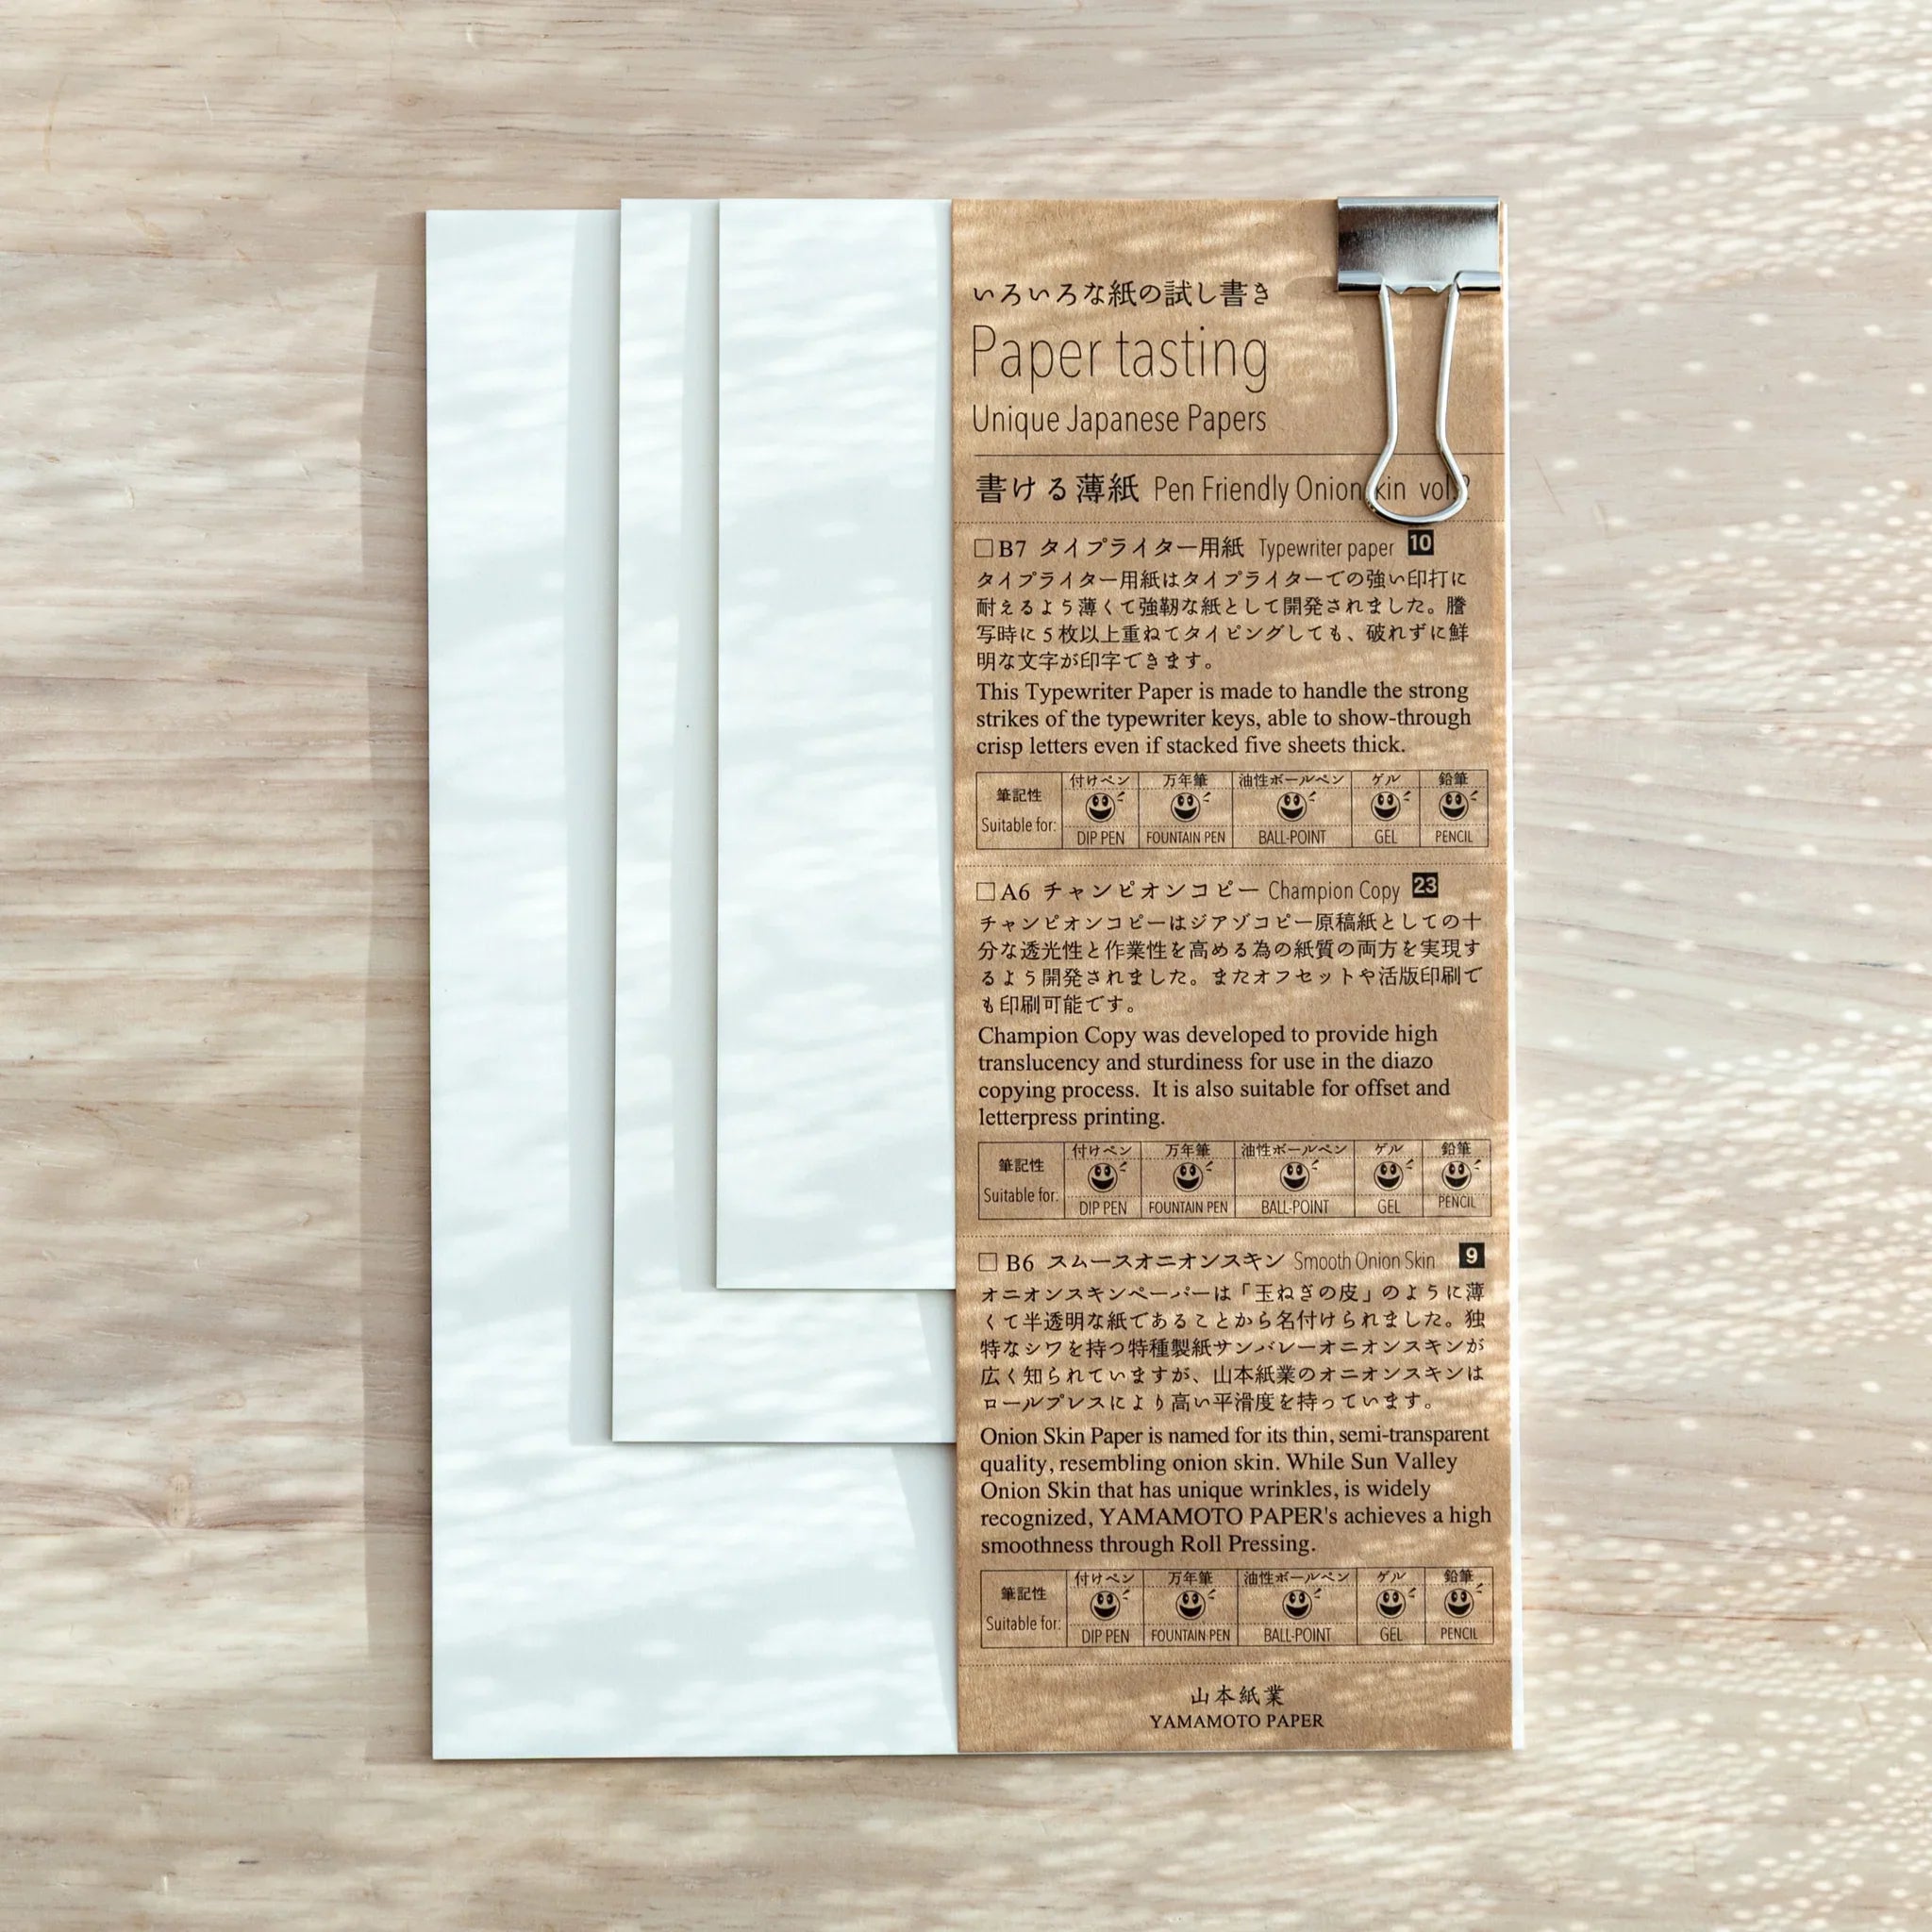 いろいろな紙の試し書き
Paper tasting
Unique Japanese Papers
書ける薄紙 Pen Friendly Onion kin vol.2
□B7 タイプライター用紙 Typewriter paper 10
タイプライター用紙はタイプライターでの強い印打に
耐えるよう薄くて強靭な紙として開発されました。謄
写時に5枚以上重ねてタイピングしても、破れずに鮮
明な文字が印字できます。
This Typewriter Paper is made to handle the strong
strikes of the typewriter keys, able to show-through
crisp letters even if stacked five sheets thick.
筆記性 付けペン 万年筆 油性ボールペン ゲル 鉛筆
Suitable for: DIP PEN FOUNTAIN PEN BALL-POINT GEL PENCIL
□A6 チャンピオンコピー Champion Copy 23
チャンピオンコピーはジアゾコピー原稿紙としての十
分な透光性と作業性を高める為の紙質の両方を実現す
るよう開発されました。またオフセットや活版印刷で
も印刷可能です。
Champion Copy was developed to provide high
translucency and sturdiness for use in the diazo
copying process. It is also suitable for offset and
letterpress printing.
筆記性 付けペン 万年筆 油性ボールペン ゲル 鉛筆
Suitable for: DIP PEN FOUNTAIN PEN BALL-POINT GEL PENCIL
□ B6 スムースオニオンスキン Smooth Onion Skin 9
オニオンスキンペーパーは「玉ねぎの皮」のように薄
くて半透明な紙であることから名付けられました。独
特なシワを持つ特種製紙サンバレーオニオンスキンが
広く知られていますが、山本紙業のオニオンスキンは
ロールプレスにより高い平滑度を持っています。
Onion Skin Paper is named for its thin, semi-transparent
quality, resembling onion skin. While Sun Valley
Onion Skin that has unique wrinkles, is widely
recognized, YAMAMOTO PAPER's achieves a high
smoothness through Roll Pressing.
筆記性 付けペン 万年筆 油性ボールペン ゲル 鉛筆
Suitable for: DIP PEN FOUNTAIN PEN BALL-POINT GEL PENCIL
山本紙業
YAMAMOTO PAPER